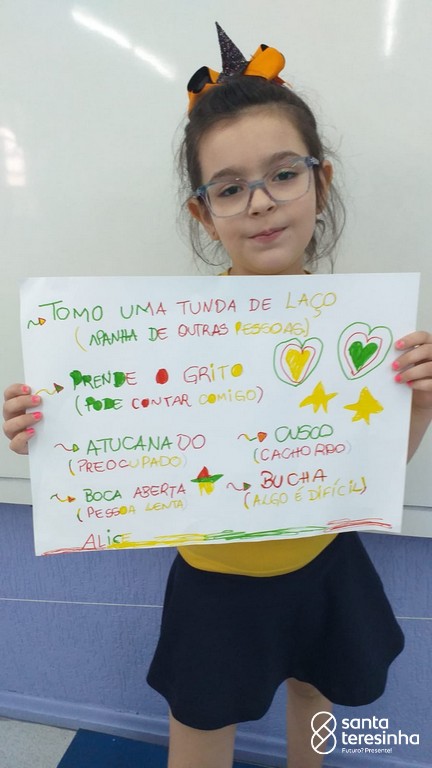 TOMO UMA TUNDA DE LAÇO
(APANHA DE OUTRAS PESSOAS)
PRENDE O GRITO
(PODE CONTAR COMIGO)
ATUCANADO
(PREOCUPADO)
CUSCO
(CACHORRO)
BOCA ABERTA
(PESSOA LENTA)
BUCHA
(ALGO É DIFÍCIL)
ALICE
santa
teresinha
Futuro? Presente!